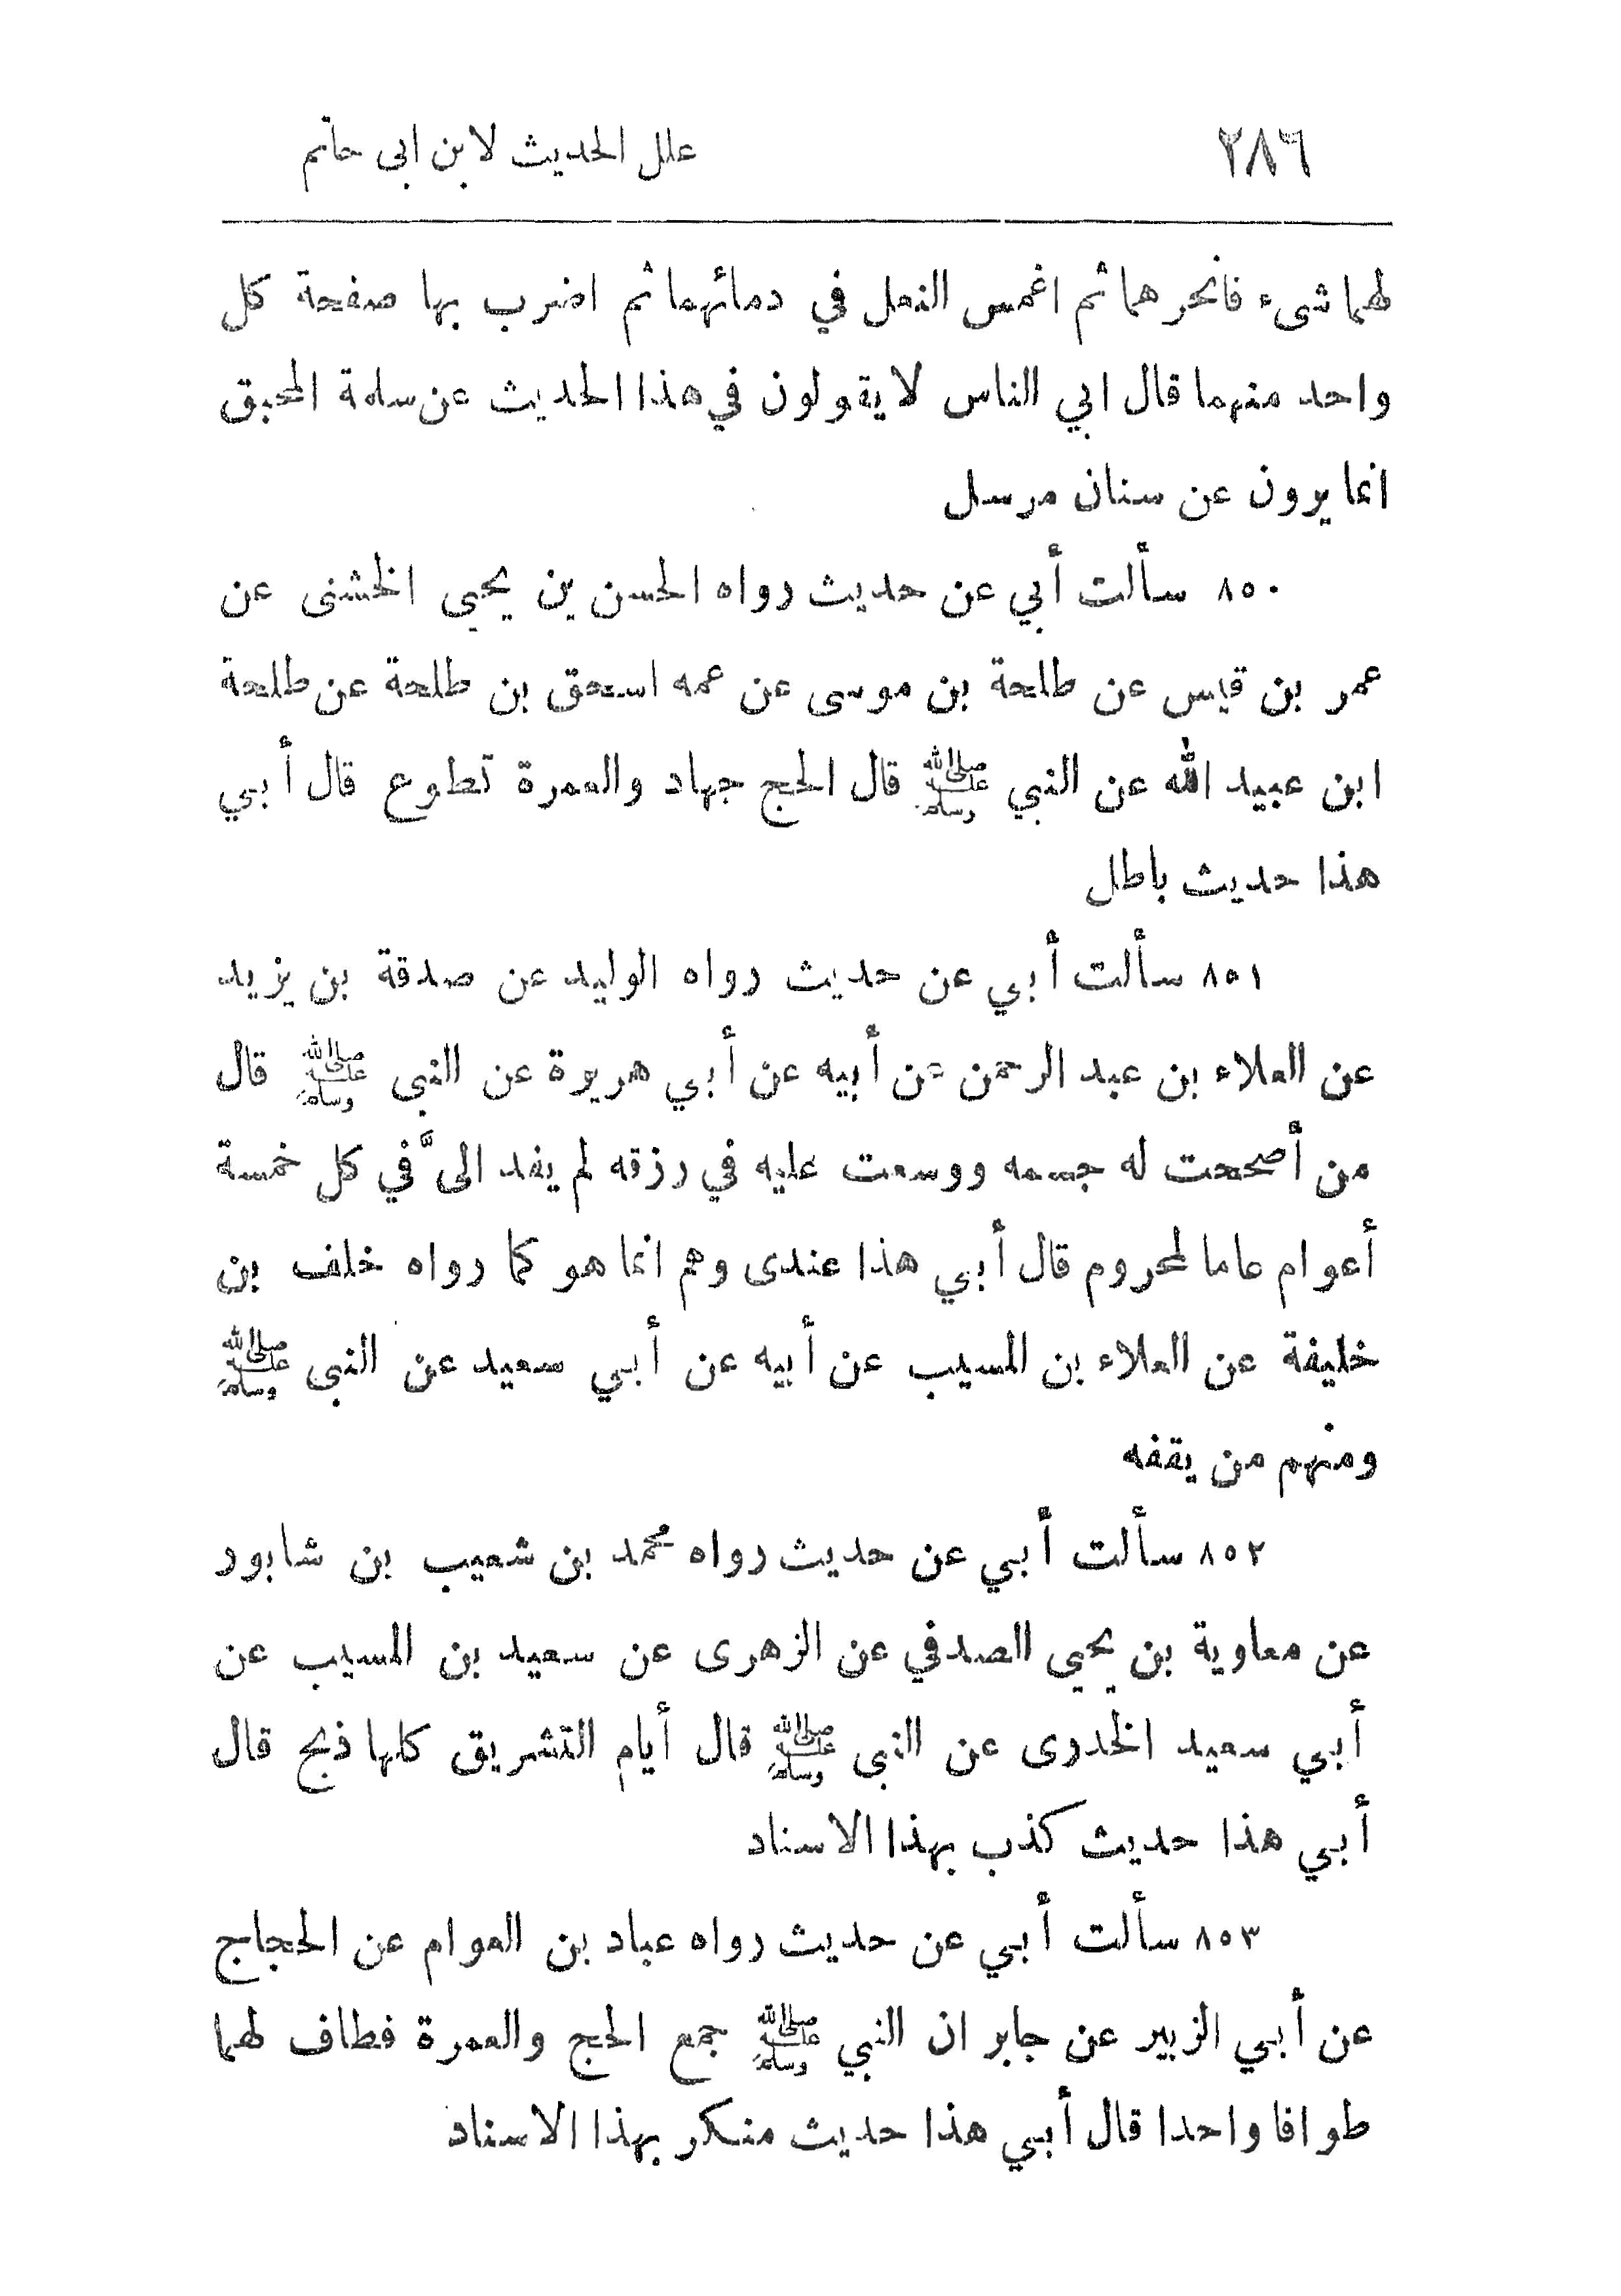 ٢٨٦ علل الحديث لابن ابى حاتم
لهما شىء فانحرهما ثم اغمس النعل في دمائهما ثم اضرب بها صفحة كل
واحد منهما قال ابي الناس لا يقولون في هذا الحديث عن سلمة المحبق
انما يرون عن سنان مرسل
٨٥٠ سألت أبي عن حديث رواه الحسن بن يحيى الخشنى عن
عمر بن قيس عن طلحة بن موسى عن عمه اسحق بن طلحة عن طلحة
ابن عبيد الله عن النبي ﷺ قال الحج جهاد والعمرة تطوع قال أبي
هذا حديث باطل
٨٥١ سألت أبي عن حديث رواه الوليد عن صدقة بن يزيد
عن العلاء بن عبد الرحمن عن أبيه عن أبي هريرة عن النبى ﷺ قال
من أصححت له جسمه ووسعت عليه في رزقه لم يفد الىَّ في كل خمسة
أعوام عاما لمحروم قال أبي هذا عندى وهم انما هو كما رواه خلف بن
خليفة عن العلاء بن المسيب عن أبيه عن أبي سعيد عن النبى ﷺ
ومنهم من يقفه
٨٥٢ سألت أبي عن حديث رواه محمد بن شعيب بن شابور
عن معاوية بن يحيى الصدفي عن الزهرى عن سعيد بن المسيب عن
أبي سعيد الخدرى عن النبى ﷺ قال أيام التشريق كلها ذبح قال
أبي هذا حديث كذب بهذا الاسناد
٨٥٣ سألت أبي عن حديث رواه عباد بن العوام عن الحجاج
عن أبي الزبير عن جابر ان النبي ﷺ جمع الحج والعمرة فطاف لهما
طوافا واحدا قال أبي هذا حديث منكر بهذا الاسناد